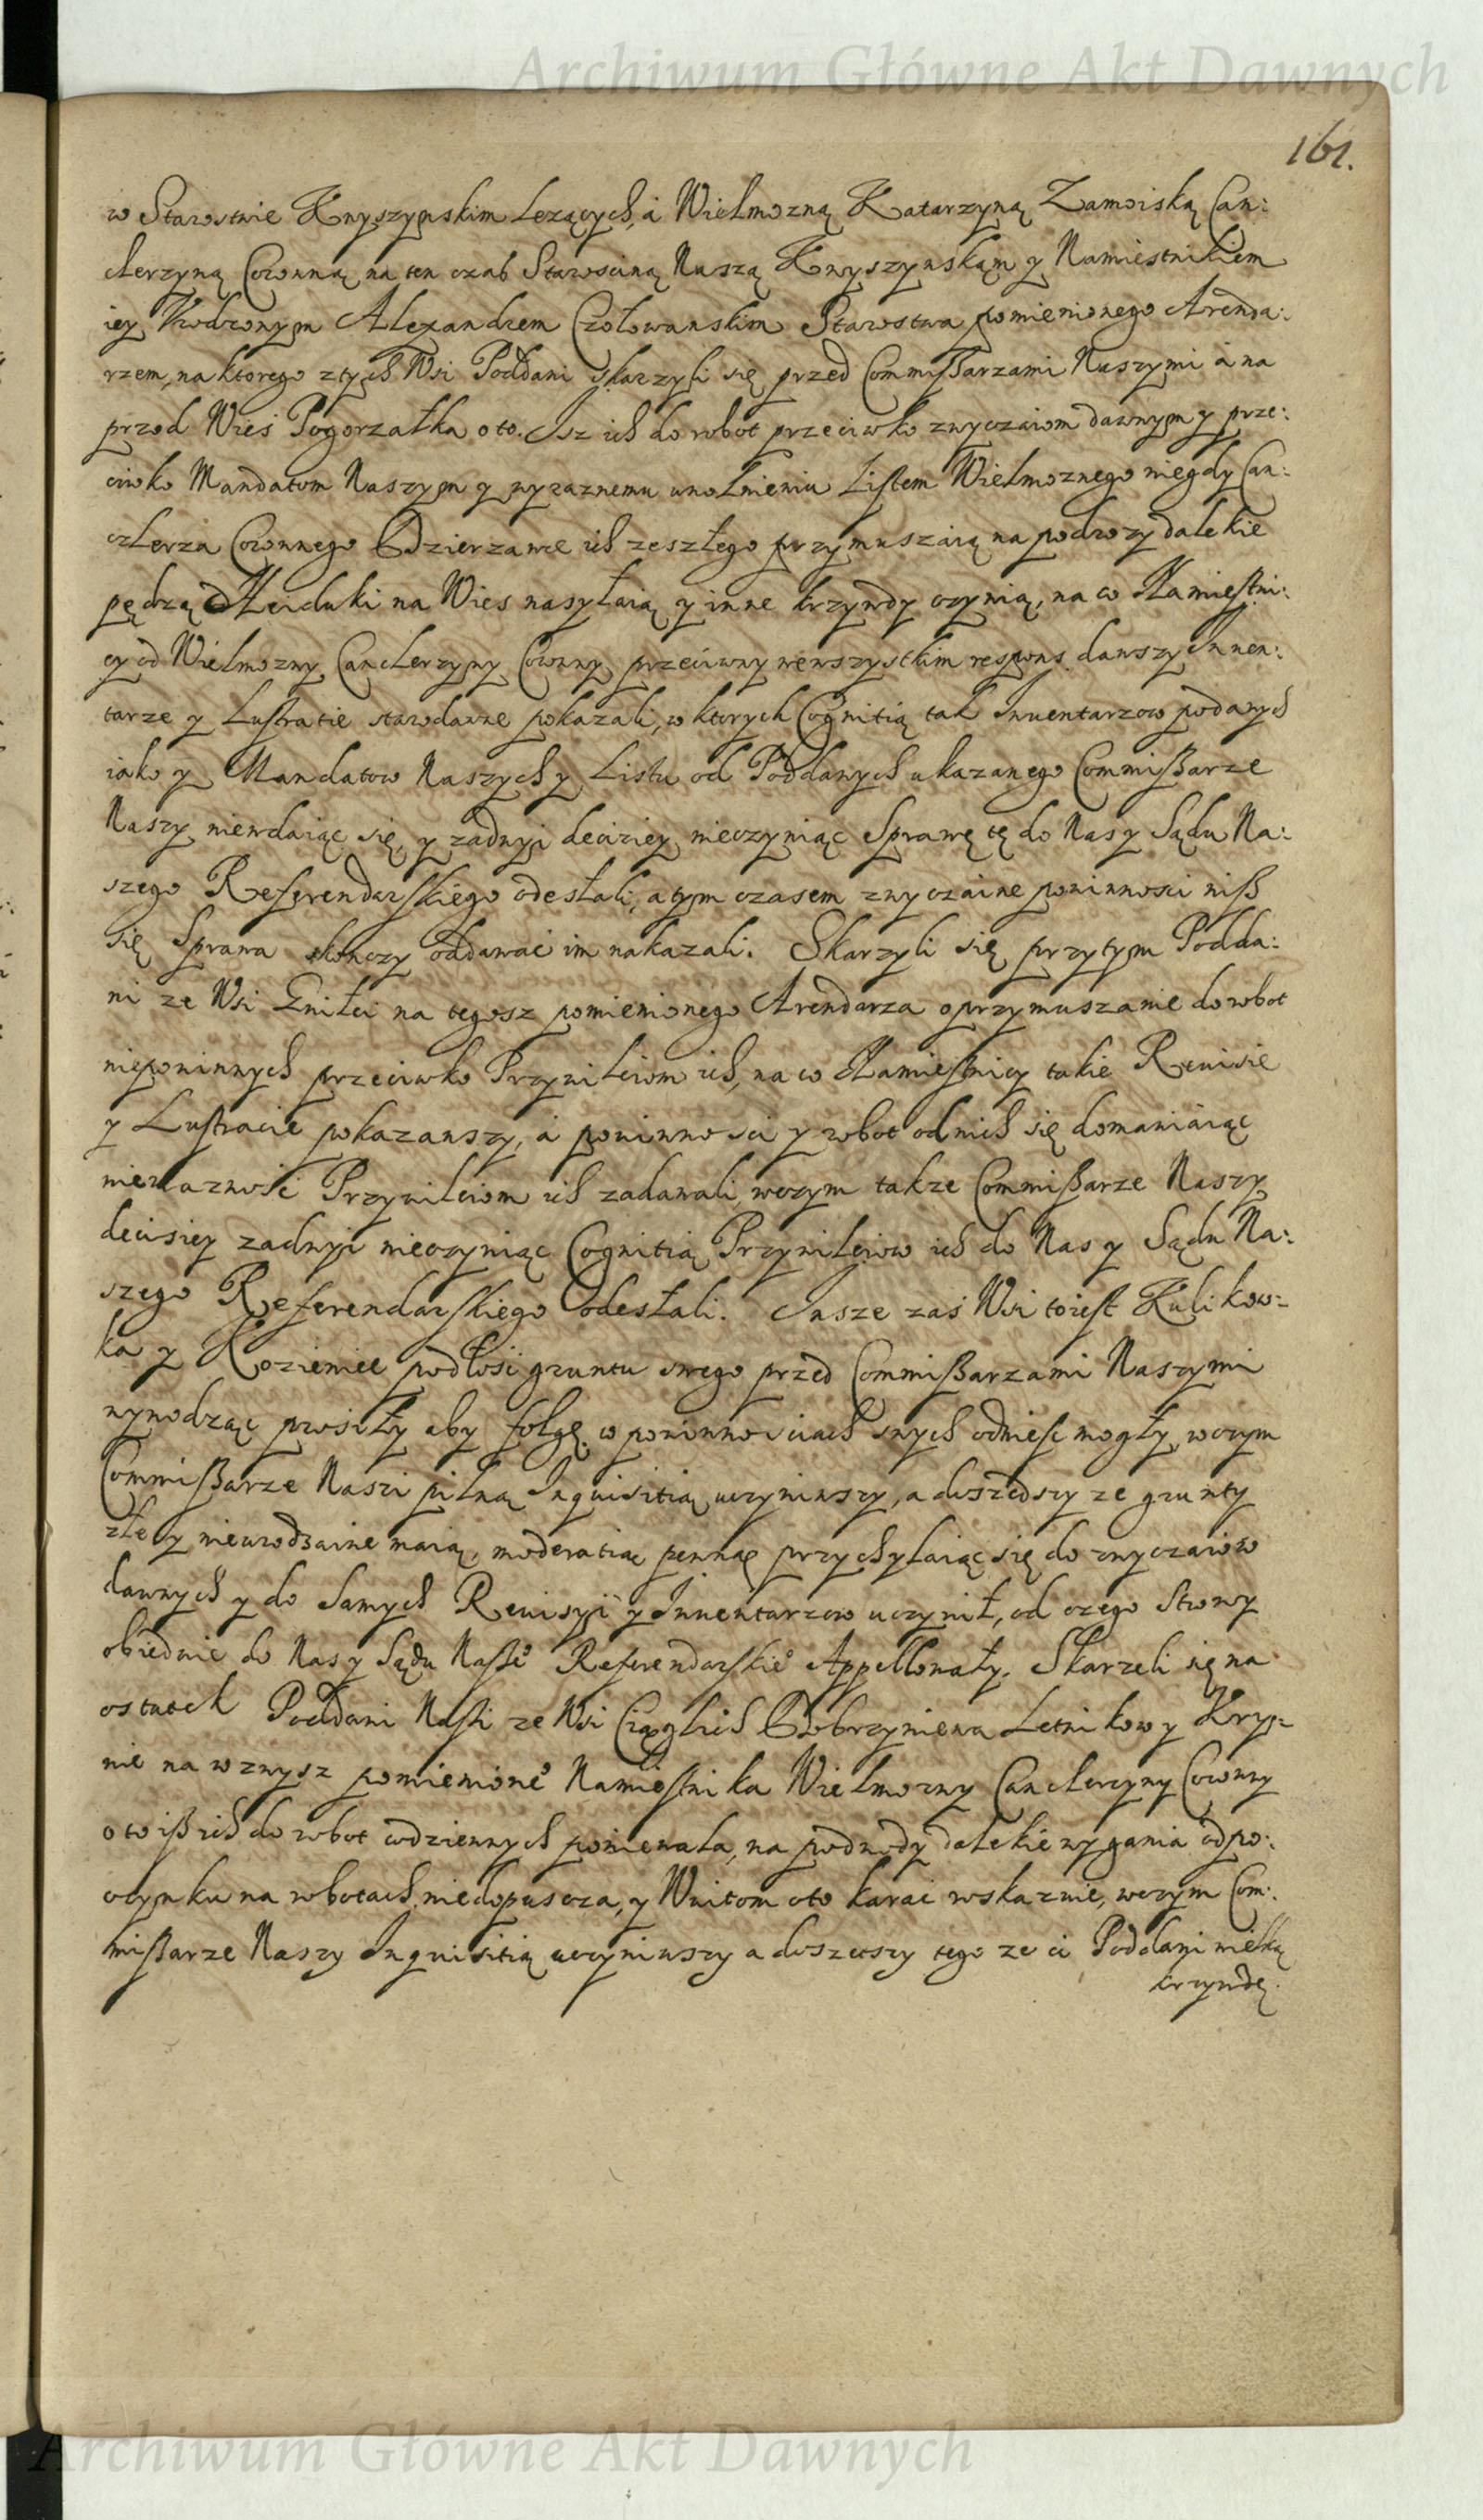 Archiwum Główne Akt Dawnych
161.
w Starostwie Knyszynskim Lezących, a Wielmozną Katarzyną Zamoiską Can:
clerzyną Coronną na ten czas Starosciną Naszą Knyszynskąm y Namiestnikiem
iey Vrodzonym Alexandrem Czołowanskim Starostwa pomienionego Arenda:
rzem, na ktorego z tych Wsi Poddani skarzyli się przed Commißarzami Naszymi a na
przod Wies Pogorzałka o to. Isz ich do robot przeciwko zwyczaiom dawnym y prze:
ciwko Mandatom Naszym y wyraznemu uwolnieniu Listem Wielmoznego niegdy Can:
clerza Coronnego Dzierzawce ich zeszłego przymuszaią na podrozy dalekie
pędzą Heiduki na Wies nasyłaią y inne krzywdy czynią, na co Namiestni:
cy od Wielmozny Canclerzyny Coronny przeciwny wewszystkim respons dawszy Inwen:
tarze y Lustratie starodawne pokazali, w ktorych Cognitią tak Inuentarzow podanych
iako y Mandatow Naszych y Listu od Poddanych ukazanego Commißarze
Naszy niewdaiąc się, y zadnyi deciziey nieczyniąc Sprawę tę do Nas y Sądu Na:
szego Referendarskiego odesłali, a tym czasem zwyczaine powinnosci niß
się Sprawa skonczy oddawać im nakazali. Skarzyli się przytym Podda:
ni ze Wsi Gniłei na tegosz pomienionego Arendarza o przymuszanie do robot
niepowinnych przeciwko Przywileiom ich, na co Namiestnicy takie Reuisie
y Lustracie pokazawszy, a powinnosci y robot od nich się domawiaiąc
niewaznośc Przywileiom ich zadawali, w czym takze Commißarze Naszy
decisiey zadnyi nieczyniąc Cognitią Przywileiow ich do Nas y Sądu Na:
szego Referendarskiego odesłali. Insze zaś Wsi toiest Kulikow:
ka y Kozieniec podłośc gruntu swego przed Commißarzami Naszymi
wywodząc prosiły aby folgę w powinnosciach swych odnieść mogły, w czym
Commißarze Naszi pilną Inquisitią uczyniwszy, a doszedszy ze grunty
złe y nieurodzaine maią, moderatią pewną przychylaiąc się do zwyczaiow
dawnych y do Samych Reuisyi y Inuentarzow uczynił, od czego Strony
obiedwie do Nas y Sądu Naße° Referendarskie° Appellowały. Skarzeli się na
ostatek Poddani Naßi ze Wsi Ciągłich Dobrzyniewa Letnikow y Kryp:
nie na wzwysz pomienione° Namiestnika Wielmozny Canclerzyny Coronny
o to iß ich do robot codziennych poniewala, na podwody dalekie wygania odpo:
czynku na robotach niedopuscza, y Woitom o to karać wskazuie, w czym Com:
mißarze Naszy Inquisitią uczyniwszy a doszetszy tego ze ci Poddani wielką
krzywdę.
Archiwum Główne Akt Dawnych